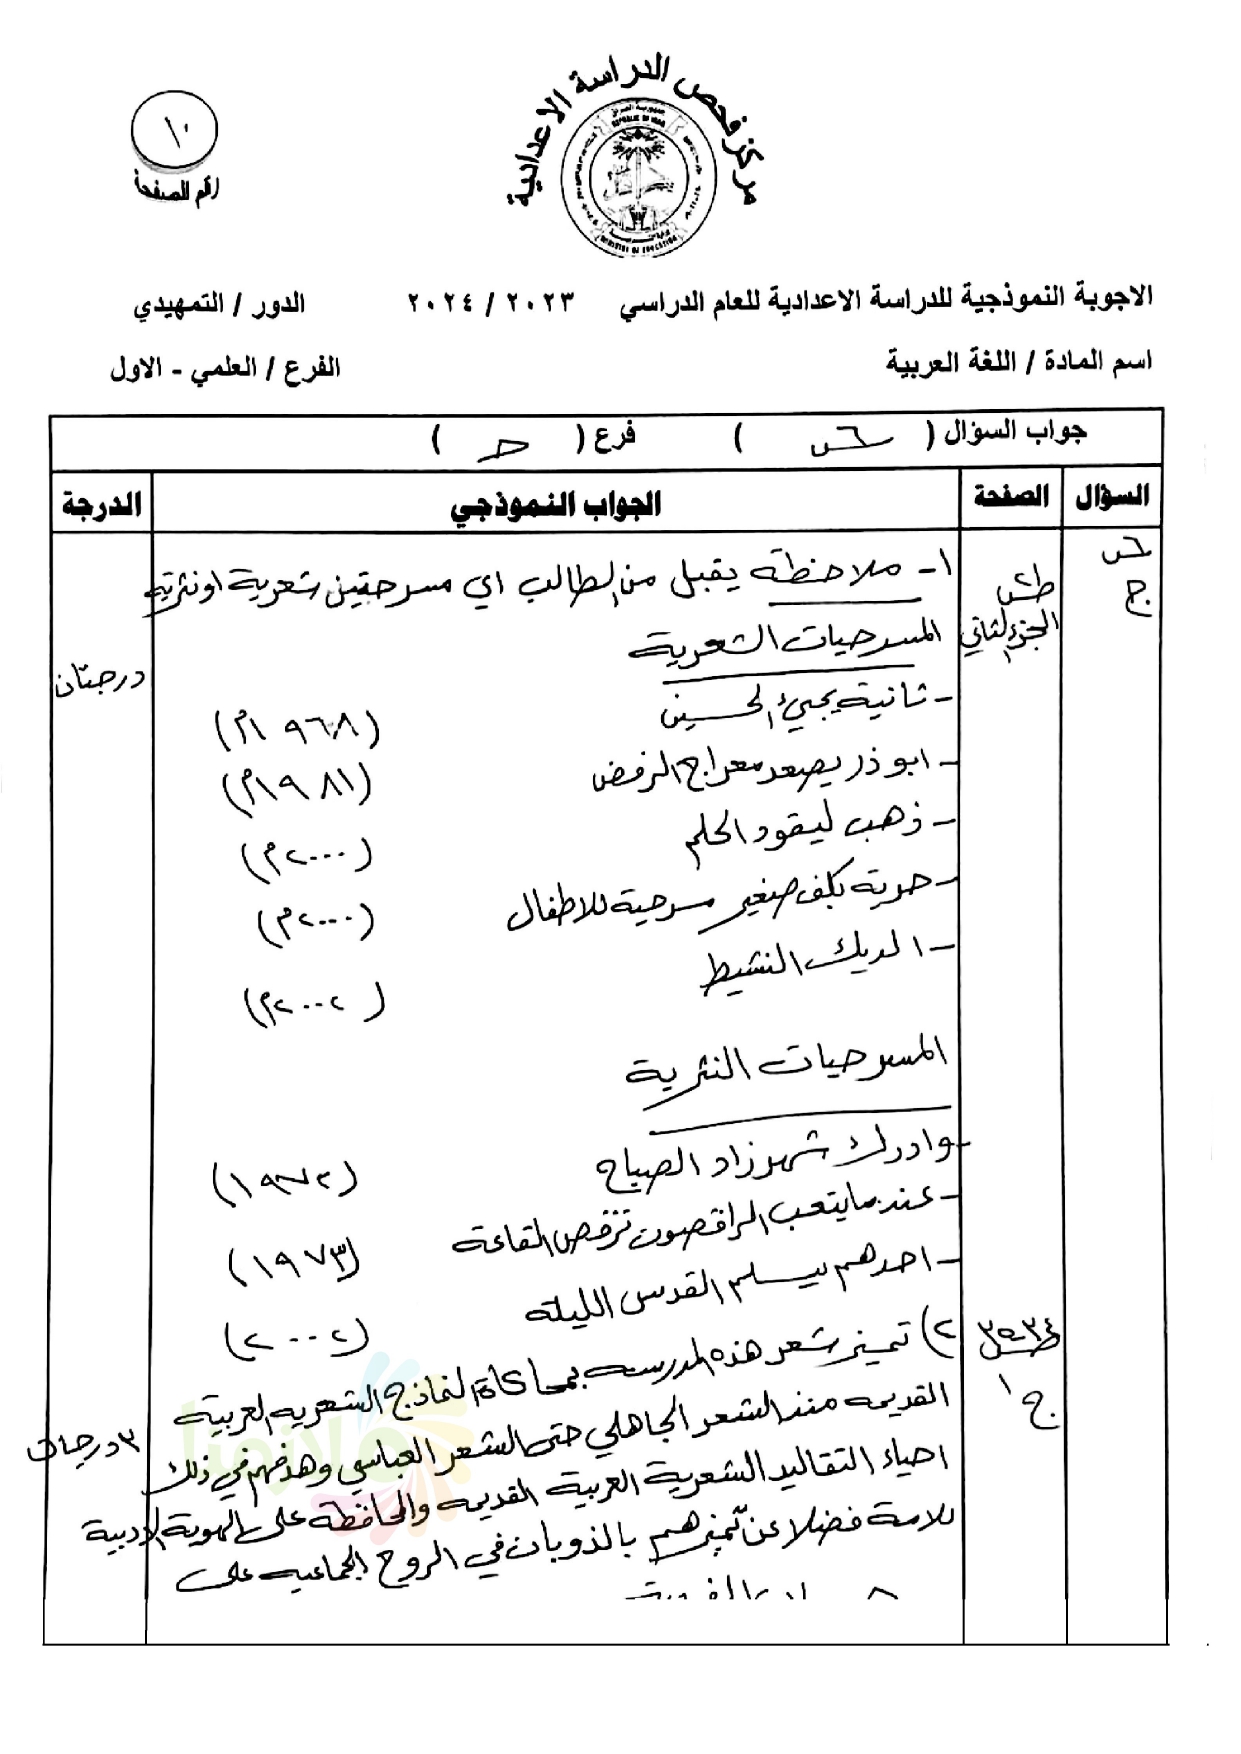 مركز فحص الدراسة الاعدادية
١٠
رقم الصفحة
الاجوبة النموذجية للدراسة الاعدادية للعام الدراسي ٢٠٢٣ / ٢٠٢٤ الدور / التمهيدي
اسم المادة / اللغة العربية الفرع / العلمي - الاول
جواب السؤال ( س٦ ) فرع ( ج )
السؤال الصفحة الجواب النموذجي الدرجة
س٦
ج
الجزء الثاني
١- ملاحظة يقبل من الطالب اي مسرحيتين شعرية او نثرية
المسرحيات الشعرية
درجتان
- ثانية يجيء الحسين (١٩٦٨م)
- ابو ذر يصعد معراج الرفض (١٩٨١م)
- ذهب ليقود الحلم (٢٠٠٠م)
- حرية بكف صغير مسرحية للاطفال (٢٠٠٠م)
- الديك النشيط (٢٠٠٢م)
المسرحيات النثرية
- وادرك شهرزاد الصباح (١٩٧٢)
- عندما يتعب الراقصون ترقص القاعة (١٩٧٣)
- احدهم يسلم القدس الليلة (٢٠٠٢)
ج١
٣ درجات
٢) تميز شعر هذه المدرسه بمحاكاة النماذج الشعريه العربية
القديمه منذ الشعر الجاهلي حتى الشعر العباسي وهدفهم في ذلك
احياء التقاليد الشعرية العربية القديمه والمحافظة على الهوية الادبية
للامة فضلا عن تميزهم بالذوبان في الروح الجماعيه على
ملازمنا